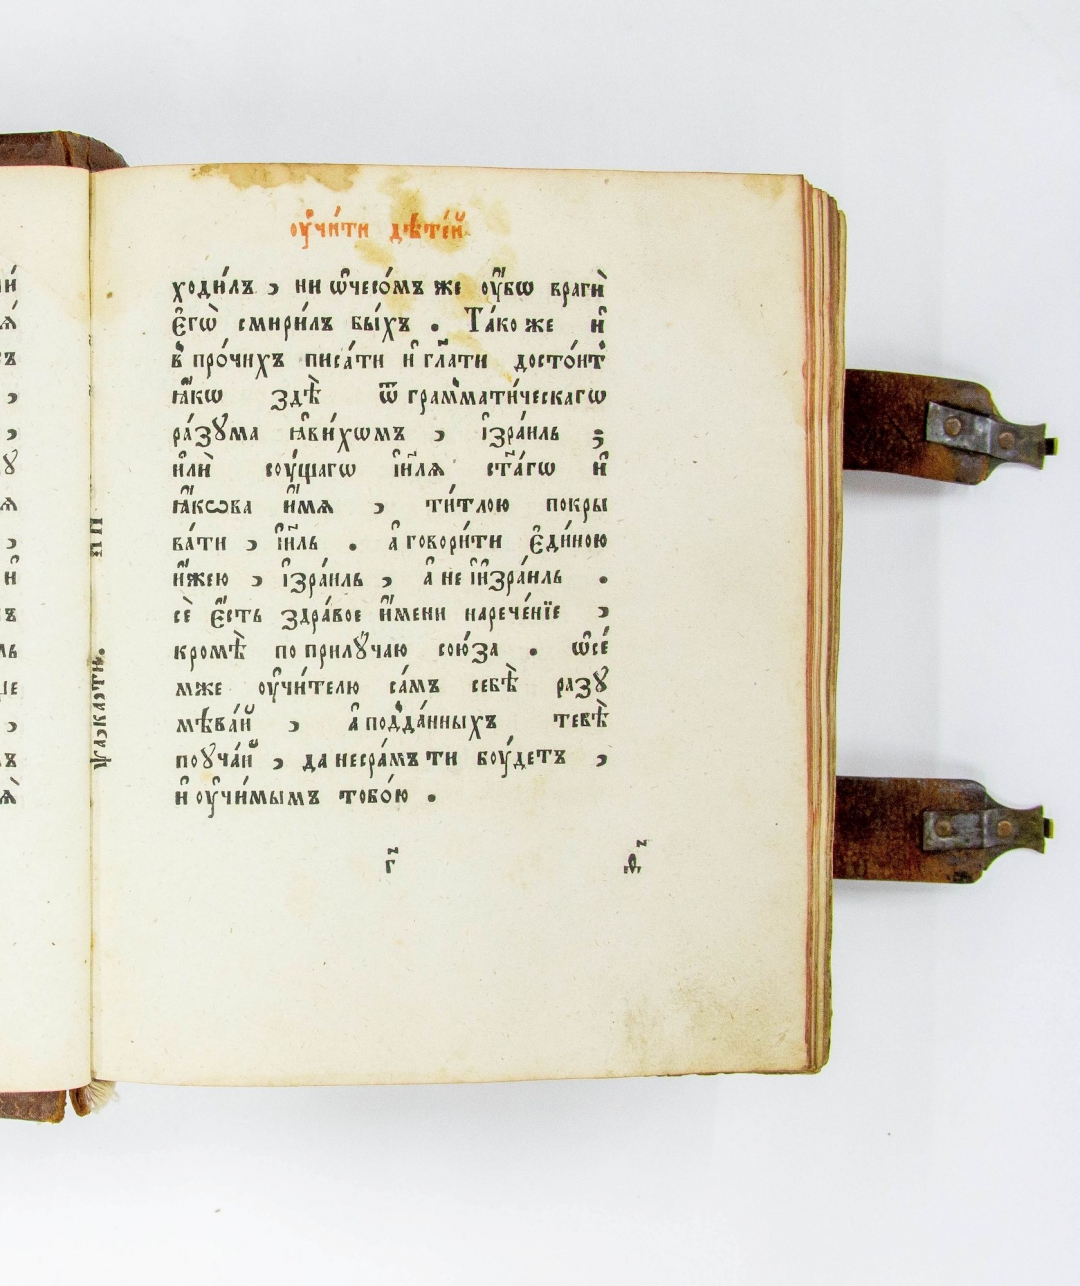 оу҆чи́ти дѣте́й
ходи́лъ , ни ѡ҆чесо́мъ же оу҆́бѡ врагѝ
є҆гѡ̀ смири́лъ бы́хъ . Та́коже и҆
в̾ про́чихъ писа́ти и҆ гл҃ати досто́ит̾
ꙗ҆́кѡ здѣ̀ ѿ грам̾мати́ческагѡ
ра́зꙋма ꙗ҆ви́хѡмъ , і҆зра́иль ;
и҆лѝ соу́щагѡ і҆и҃лѧ ст҃а́гѡ и҆
ꙗ҆́кѡва и҆́мѧ , ти́тлою покры
ва́ти , і҆и҃ль . а҆ говори́ти є҆ди́ною
и҆́жею , і҆зра́иль , а҆ не і҆и҆зра́иль .
сѐ є҆́сть здра́вое и҆́мени нарече́нїе ,
кромѣ̀ по прилꙋчаю сою́за . ѡ҆се́
мже оу҆чи́телю са́мъ себѣ̀ разꙋ
мѣва́й , а҆ под̾да́нныхъ тебѣ̀
поꙋча́й , да несра́мъ ти боу́детъ ,
и҆ оу҆чи́мымъ тобо́ю .
г҃